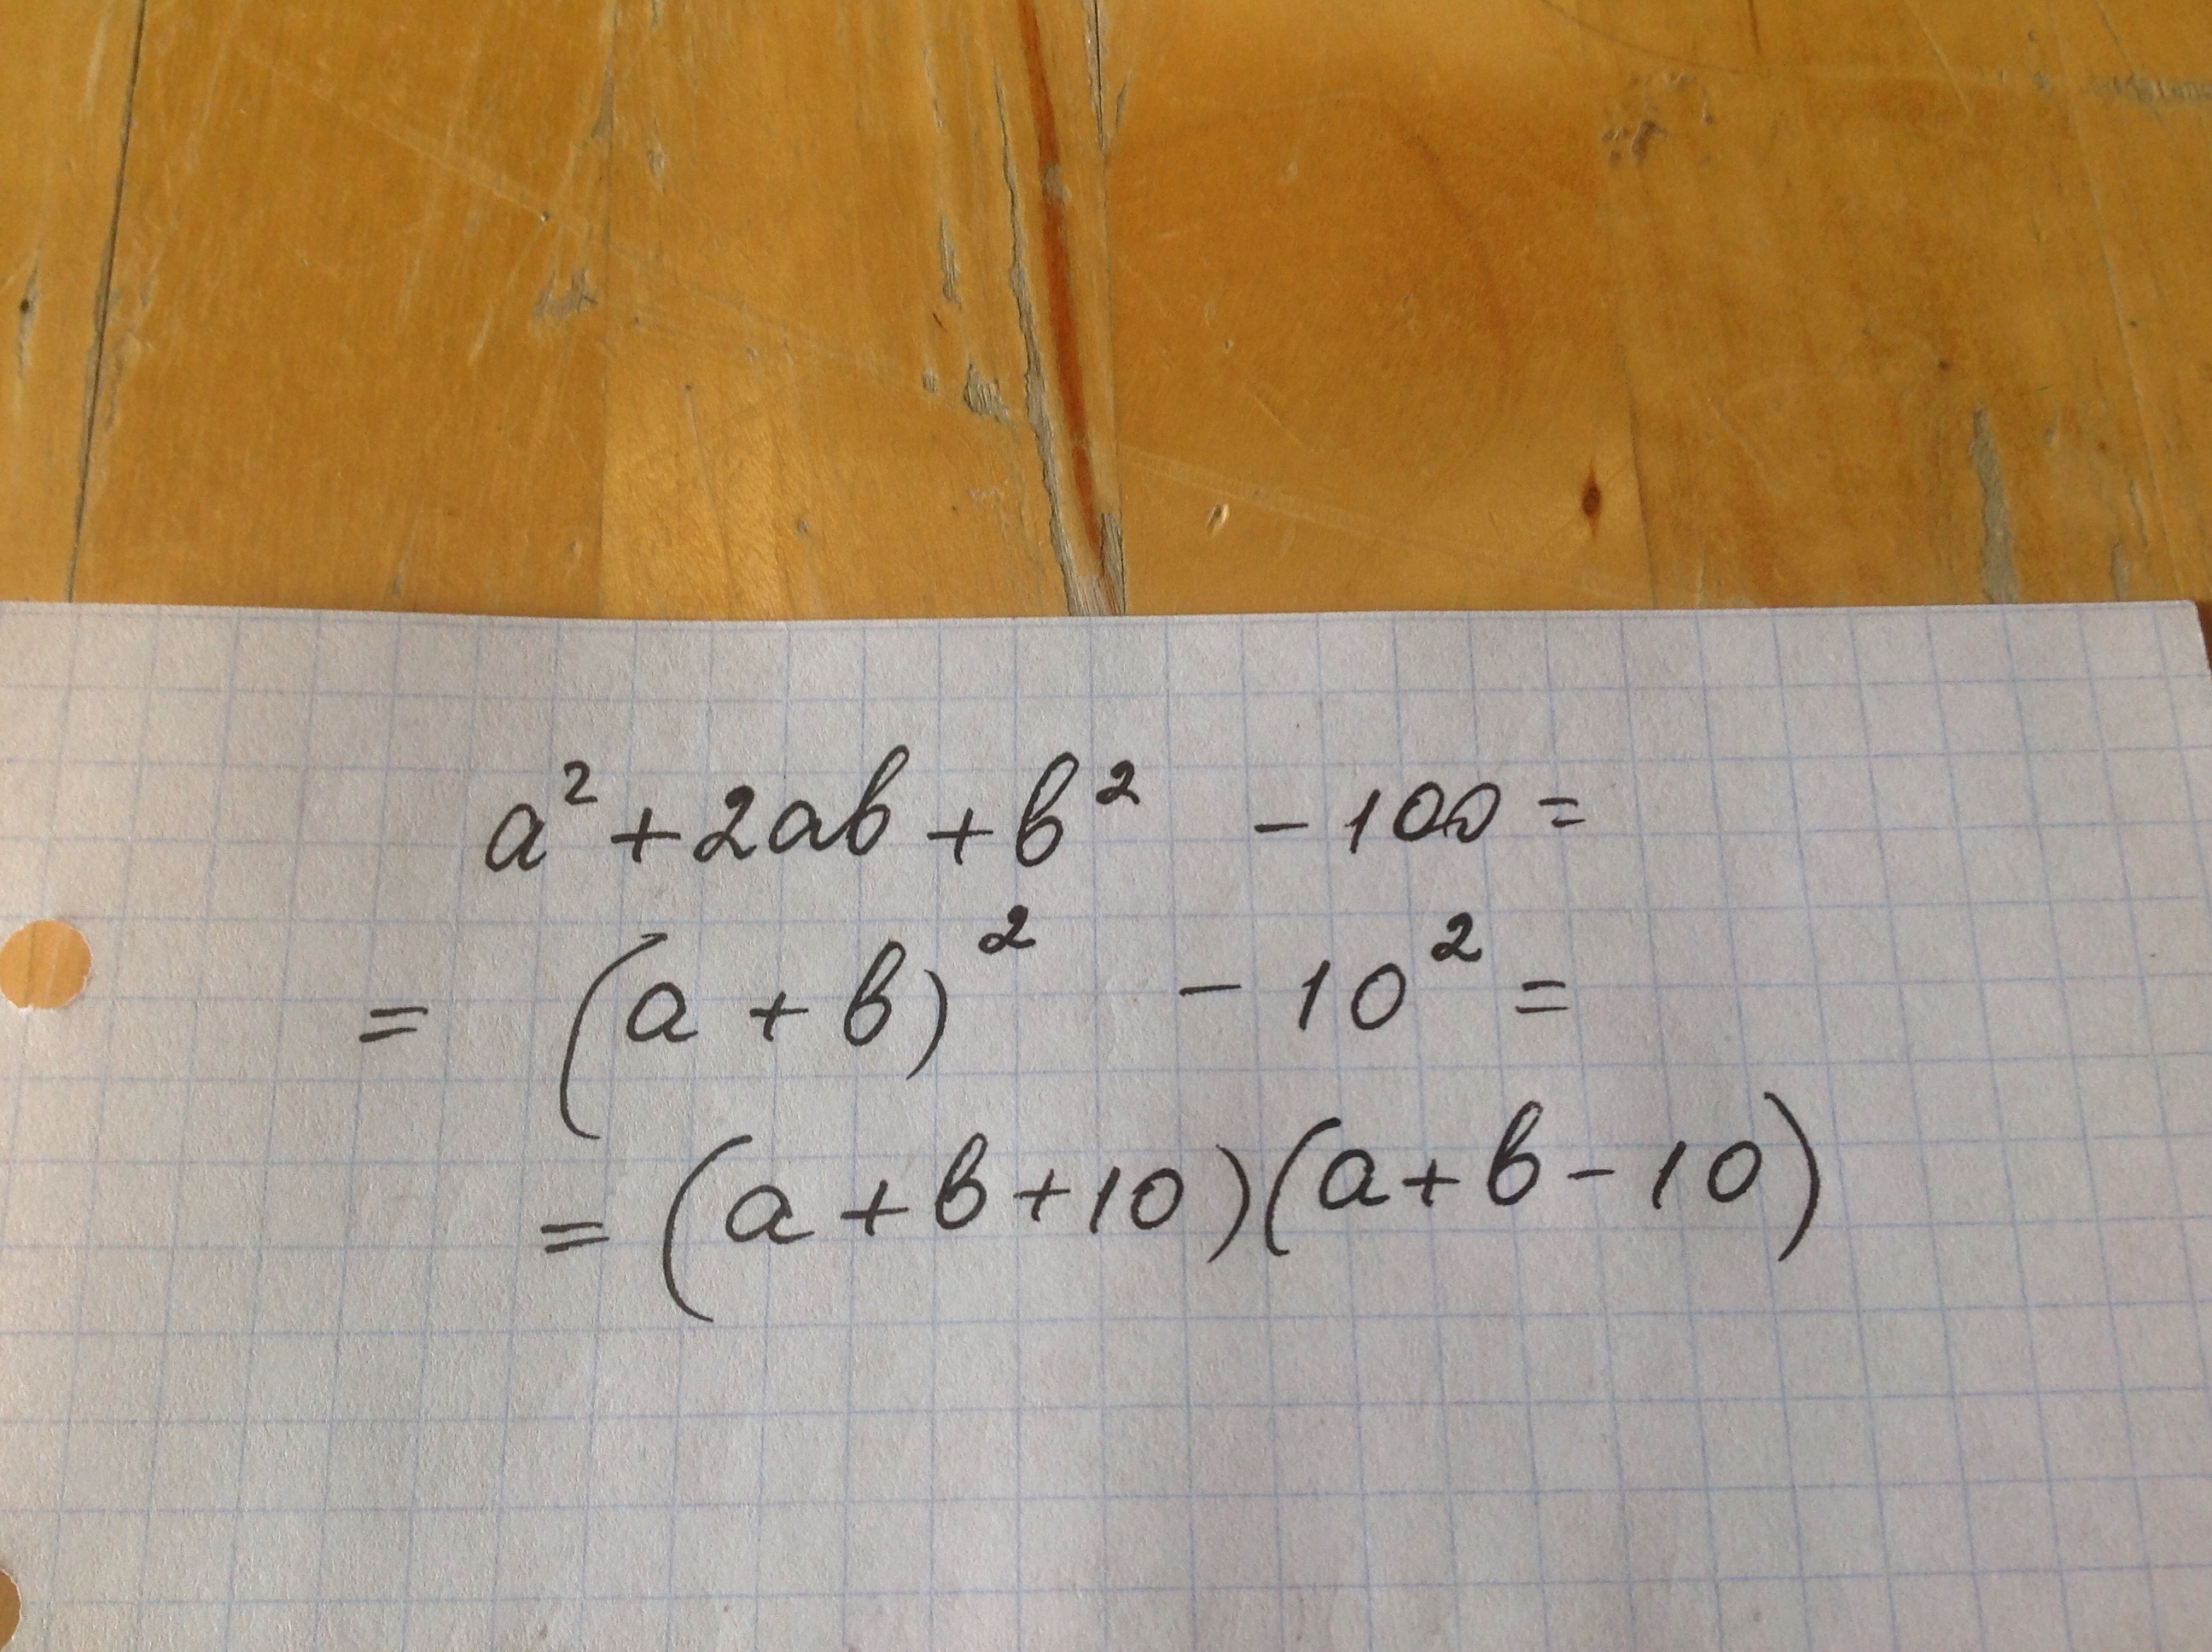 a² + 2ab + b² - 100 =
= (a + b)² - 10² =
= (a + b + 10)(a + b - 10)